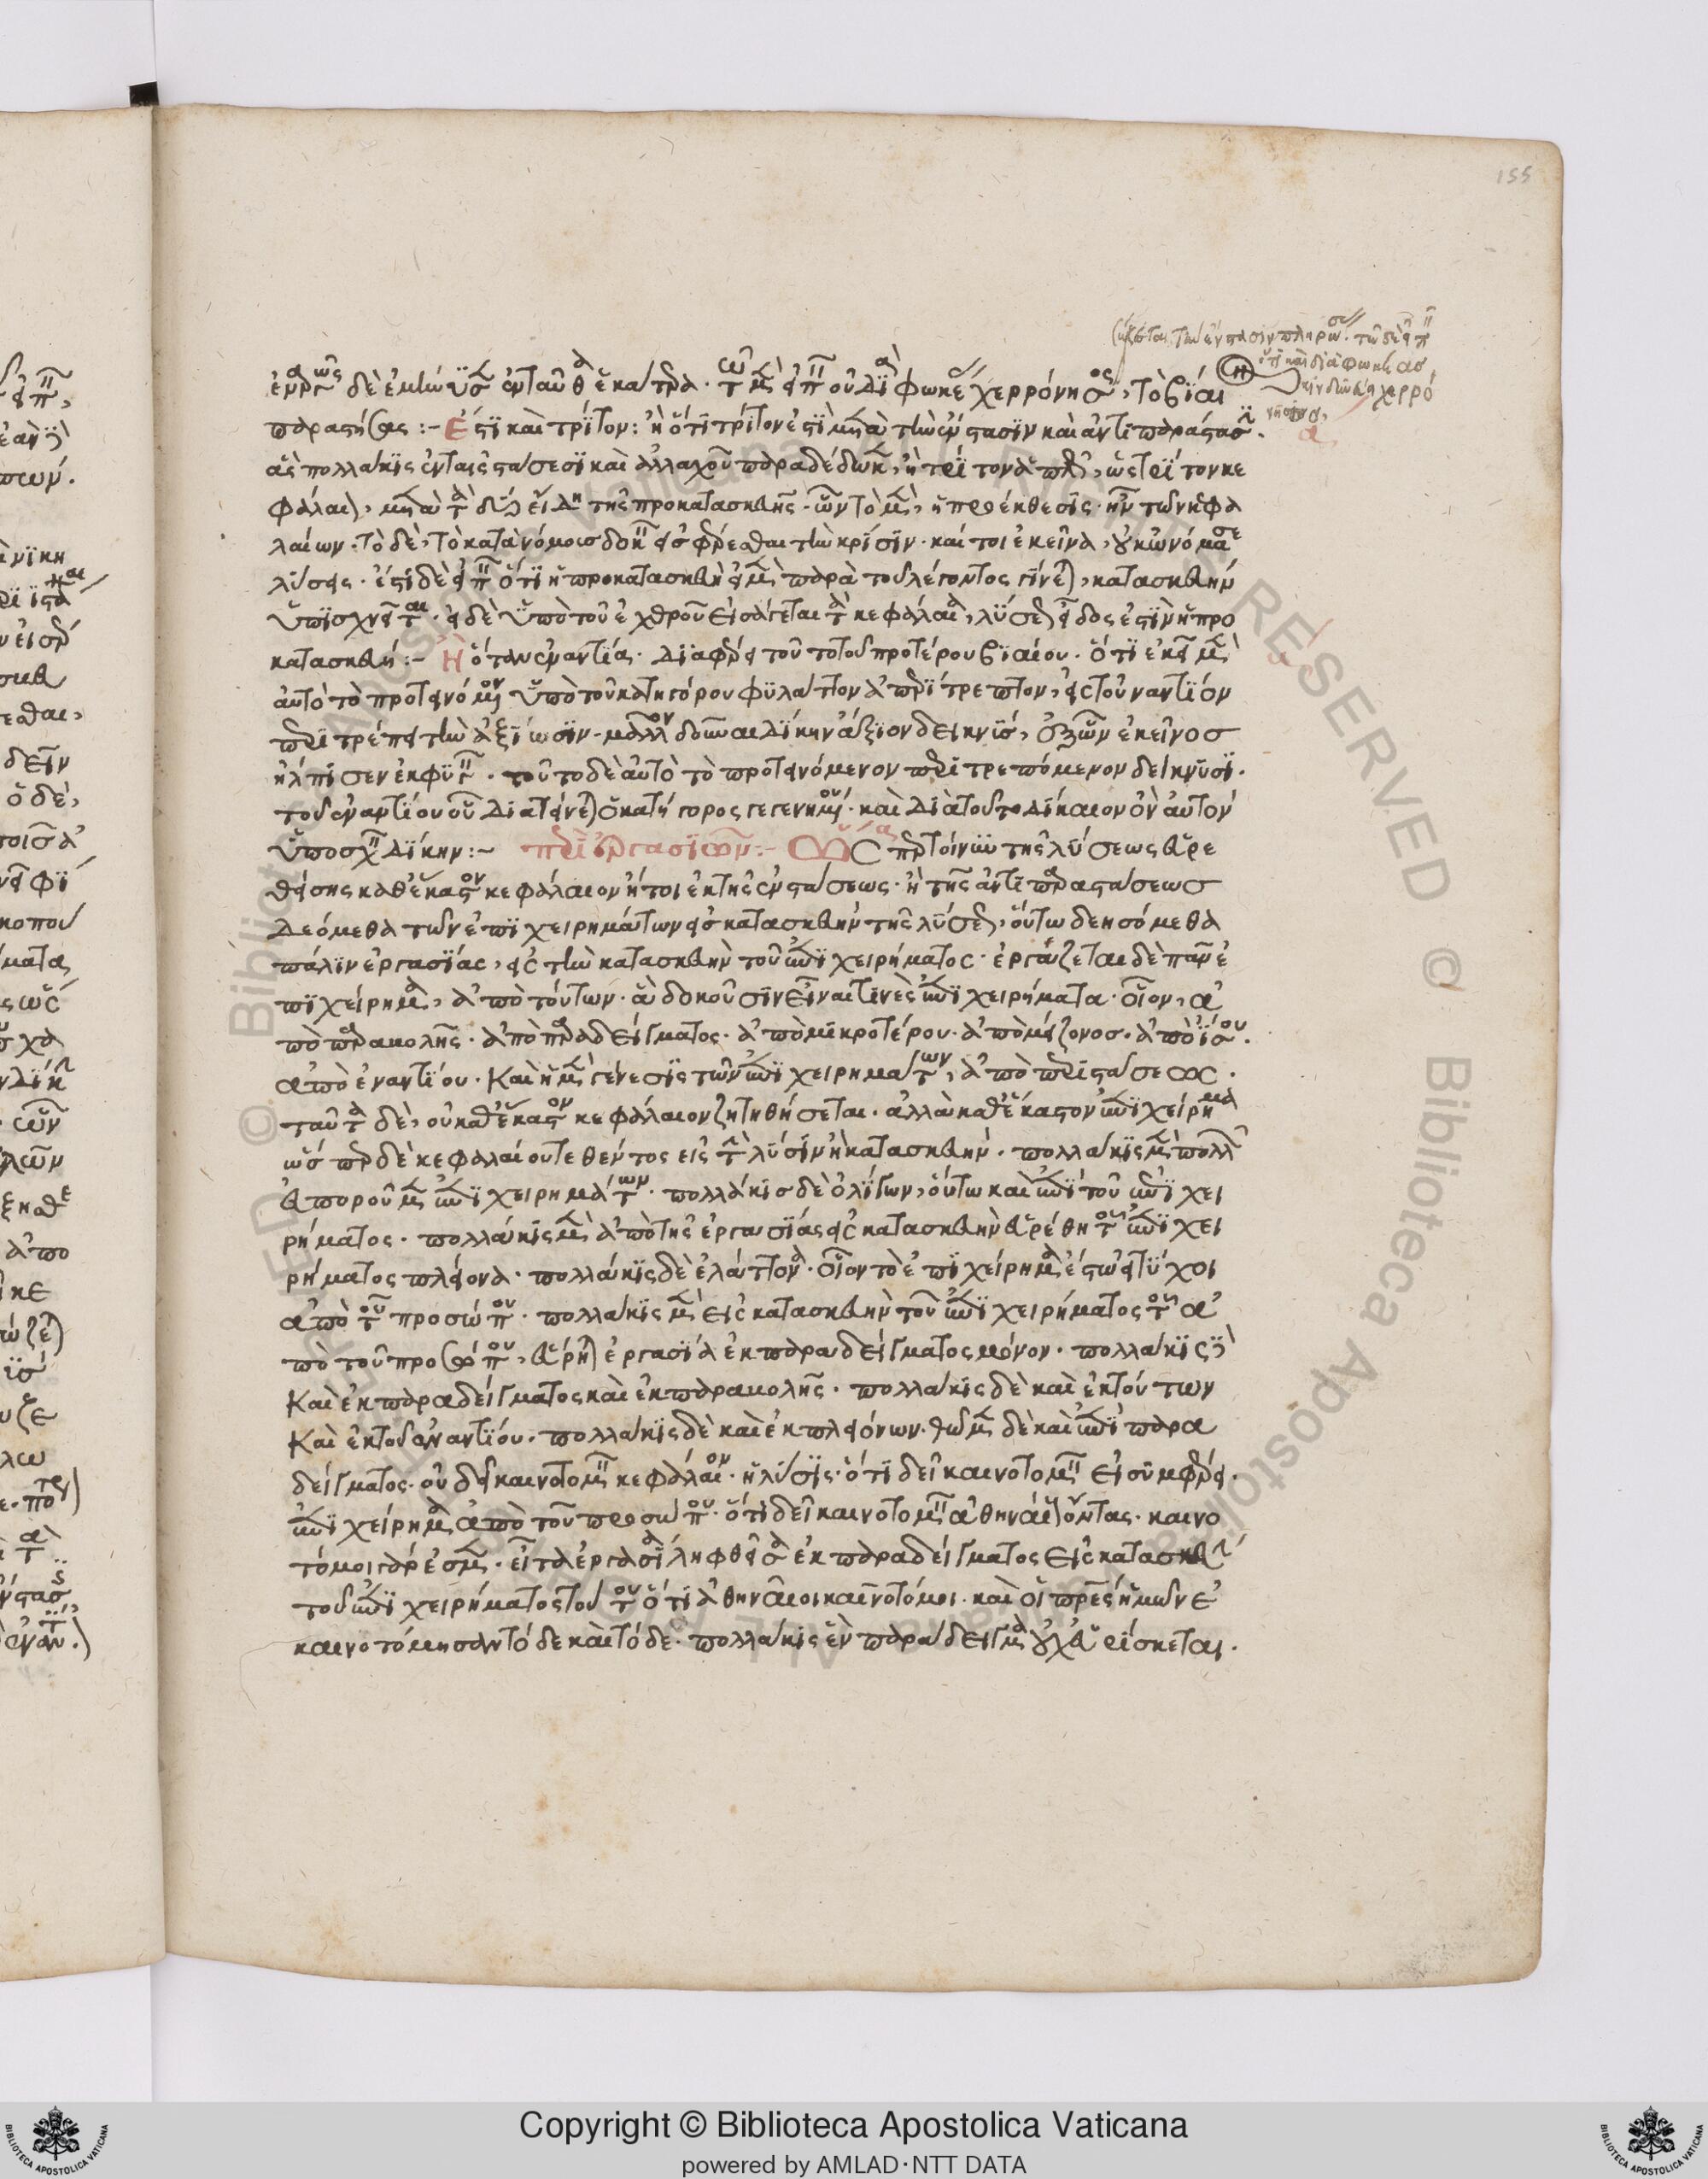 155
ἐναργῶς δὲ ἐμιμήσατο ἐνταῦθα ἑκάτερα. τῷ μὲν εἰπεῖν οὐ Διφωκε χερρόνησος, τὸ βίαι
παραστήσας :- Ἔστι καὶ τρίτον: ἢ ὅτι τρίτον ἐστὶ μετὰ τὴν ἔνστασιν καὶ ἀντιπαράστασιν.
ἃς πολλάκις ἐν ταῖς στάσεσι καὶ ἀλλαχοῦ παραδέδωκεν, ἢ τρίτον ἁπλῶς, ὡς τρίτον κε
φάλαιον, μετὰ τὰ δύο εἴδη τῆς προκατασκευῆς. ὧν τὸ μὲν, ἡ προέκθεσις ἦν τῶν κεφα
λαίων. τὸ δὲ, τὸ κατὰ νόμους δοκεῖν εἰσφέρεσθαι τὴν κρίσιν. καίτοι ἐκεῖνα, οὐκ ὠνόμασε
λύσεις. ἔστι δὲ εἰπεῖν ὅτι ἡ προκατασκευὴ εἰ μὲν παρὰ τοῦ λέγοντος γίνεται, κατασκευὴν
ὑπισχνεῖται. εἰ δὲ ὑπὸ τοῦ ἐχθροῦ εἰσάγεται τὰ κεφάλαια, λύσεως εἶδός ἐστιν ἡ προ
κατασκευή :- Ἢ ὅταν ἐναντίας. Διαφέρει τοῦτο τοῦ προτέρου βιαίου. ὅτι ἐκεῖ μὲν
αὐτὸ τὸ προτεινόμενον ὑπὸ τοῦ κατηγόρου φυλάττον ἀπεριτρεπτον, εἰς τοὐναντίον
περιτρέπει τὴν ἀξίωσιν. μᾶλλον δοῦναι δίκην ἄξιον δεικνὺς, ἐξ ὧν ἐκεῖνος
ἤλπισεν ἐκφυγεῖν. τοῦτο δὲ αὐτὸ τὸ προτεινόμενον περιτρεπόμενον δείκνυσι.
τοῦ ἐναντίου οὗ διατείνεται ὁ κατήγορος γεγενημένου. καὶ διὰ τοῦτο δίκαιον ὂν αὐτὸν
ὑποσχεῖν δίκην :- περὶ ἐργασιῶν :- Ὥσπερ τοίνυν τῆς λύσεως εὑρε
θείσης καθ' ἕκαστον κεφάλαιον ἤτοι ἐκ τῆς ἐνστάσεως. ἢ τῆς ἀντιπαραστάσεως
δεόμεθα τῶν ἐπιχειρημάτων εἰς κατασκευὴν τῆς λύσεως, οὕτω δεησόμεθα
πάλιν ἐργασίας, εἰς τὴν κατασκευὴν τοῦ ἐπιχειρήματος. ἐργάζεται δὲ πᾶν ἐ
πιχείρημα, ἀπὸ τούτων. ἃ δοκοῦσιν εἶναι τινὲς ἐπιχειρήματα. οἷον, ἀ
πὸ παραβολῆς. ἀπὸ παραδείγματος. ἀπὸ μικροτέρου. ἀπὸ μείζονος. ἀπὸ ἴσου.
ἀπὸ ἐναντίου. Καὶ ἡ μὲν γένεσις τῶν ἐπιχειρημάτων, ἀπὸ περιστάσεως.
ταῦτα δὲ, οὐ καθ' ἕκαστον κεφάλαιον ζητηθήσεται. ἀλλὰ καθ' ἕκαστον ἐπιχείρημα
ὥσπερ δὲ κεφαλαίου τεθέντος εἰς τὴν λύσιν ἢ κατασκευήν. πολλάκις μὲν πολλῶν
εὐποροῦμεν ἐπιχειρημάτων. πολλάκις δὲ ὀλίγων, οὕτω καὶ ἐπὶ τοῦ ἐπιχει
ρήματος. πολλάκις μὲν ἀπὸ τῆς ἐργασίας εἰς κατασκευὴν εὑρέθη τοῦ ἐπιχει
ρήματος πλείονα. πολλάκις δὲ ἐλάττονα. οἷον τὸ ἐπιχείρημα ἔστω εἰ τύχοι
ἀπὸ τοῦ προσώπου. πολλάκις μὲν εἰς κατασκευὴν τοῦ ἐπιχειρήματος τοῦ ἀ
πὸ τοῦ προσώπου, εὕρηται ἐργασία ἐκ παραδείγματος μόνον. πολλάκις δὲ
Καὶ ἐκ παραδείγματος καὶ ἐκ παραβολῆς. πολλάκις δὲ καὶ ἐκ τούτων
Καὶ ἐκ τοῦ ἐναντίου. πολλάκις δὲ καὶ ἐκ πλειόνων. θῶμεν δὲ καὶ ἐπὶ παρα
δείγματος. οὐ δεῖ καινοτομεῖν κεφάλαιον. ἡ λύσις. ὅτι δεῖ καινοτομεῖν εἰ συμφέρει.
ἐπιχείρημα ἀπὸ τοῦ προσώπου. ὅτι δεῖ καινοτομεῖν ἀθηναίους ὄντας. καινο
τόμοι γάρ ἐσμεν. εἶτα ἐργασία ληφθεῖσα ἐκ παραδείγματος εἰς κατασκευὴν
τοῦ ἐπιχειρήματος τούτου ὅτι ἀθηναῖοι καινοτόμοι. καὶ οἱ πατέρες ἡμῶν ἐ
καινοτόμησαν τόδε καὶ τόδε. πολλάκις ἓν παράδειγμα οὐχ εὑρίσκεται.
Copyright © Biblioteca Apostolica Vaticana
powered by AMLAD·NTT DATA